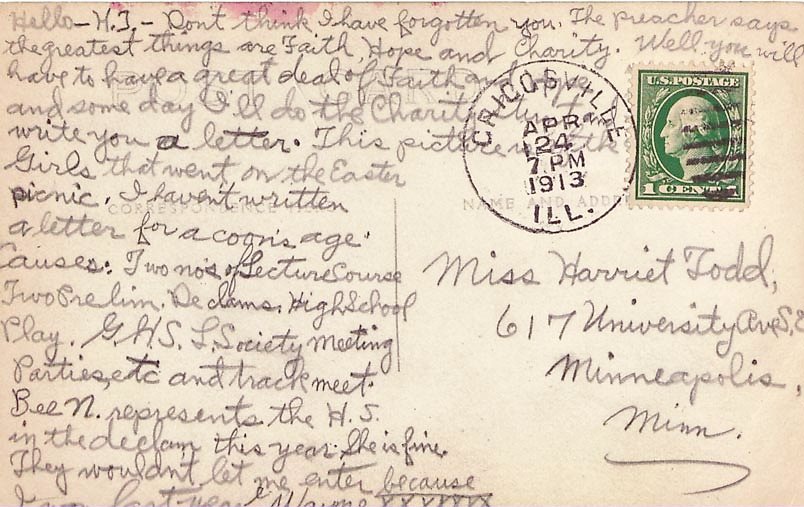 Hello - H.T. - Dont think I have forgotten you. The preacher says
the greatest things are Faith, Hope and Charity. Well you will
have to have a great deal of Faith and
and some day I'll do the Charity
write you a letter. This picture the
Girls that went on the Easter
picnic. I haven't written
a letter for a coon's age.
Causes: Two no's of Lecture Course
Two Prelim. Declams. High School
Play. G.H.S. L. Society Meeting
Parties, etc and track meet.
Bee N. represents the H.S.
in the declam this year. She is fine.
They wouldn't let me enter because
last year xxxxxxx
CORRESPONDENCE
NAME AND ADDRE
APR
24
7 PM
1913
ILL.
U.S. POSTAGE
1 CENT 1
Miss Harriet Todd,
617 University Ave, S.E
Minneapolis,
Minn.